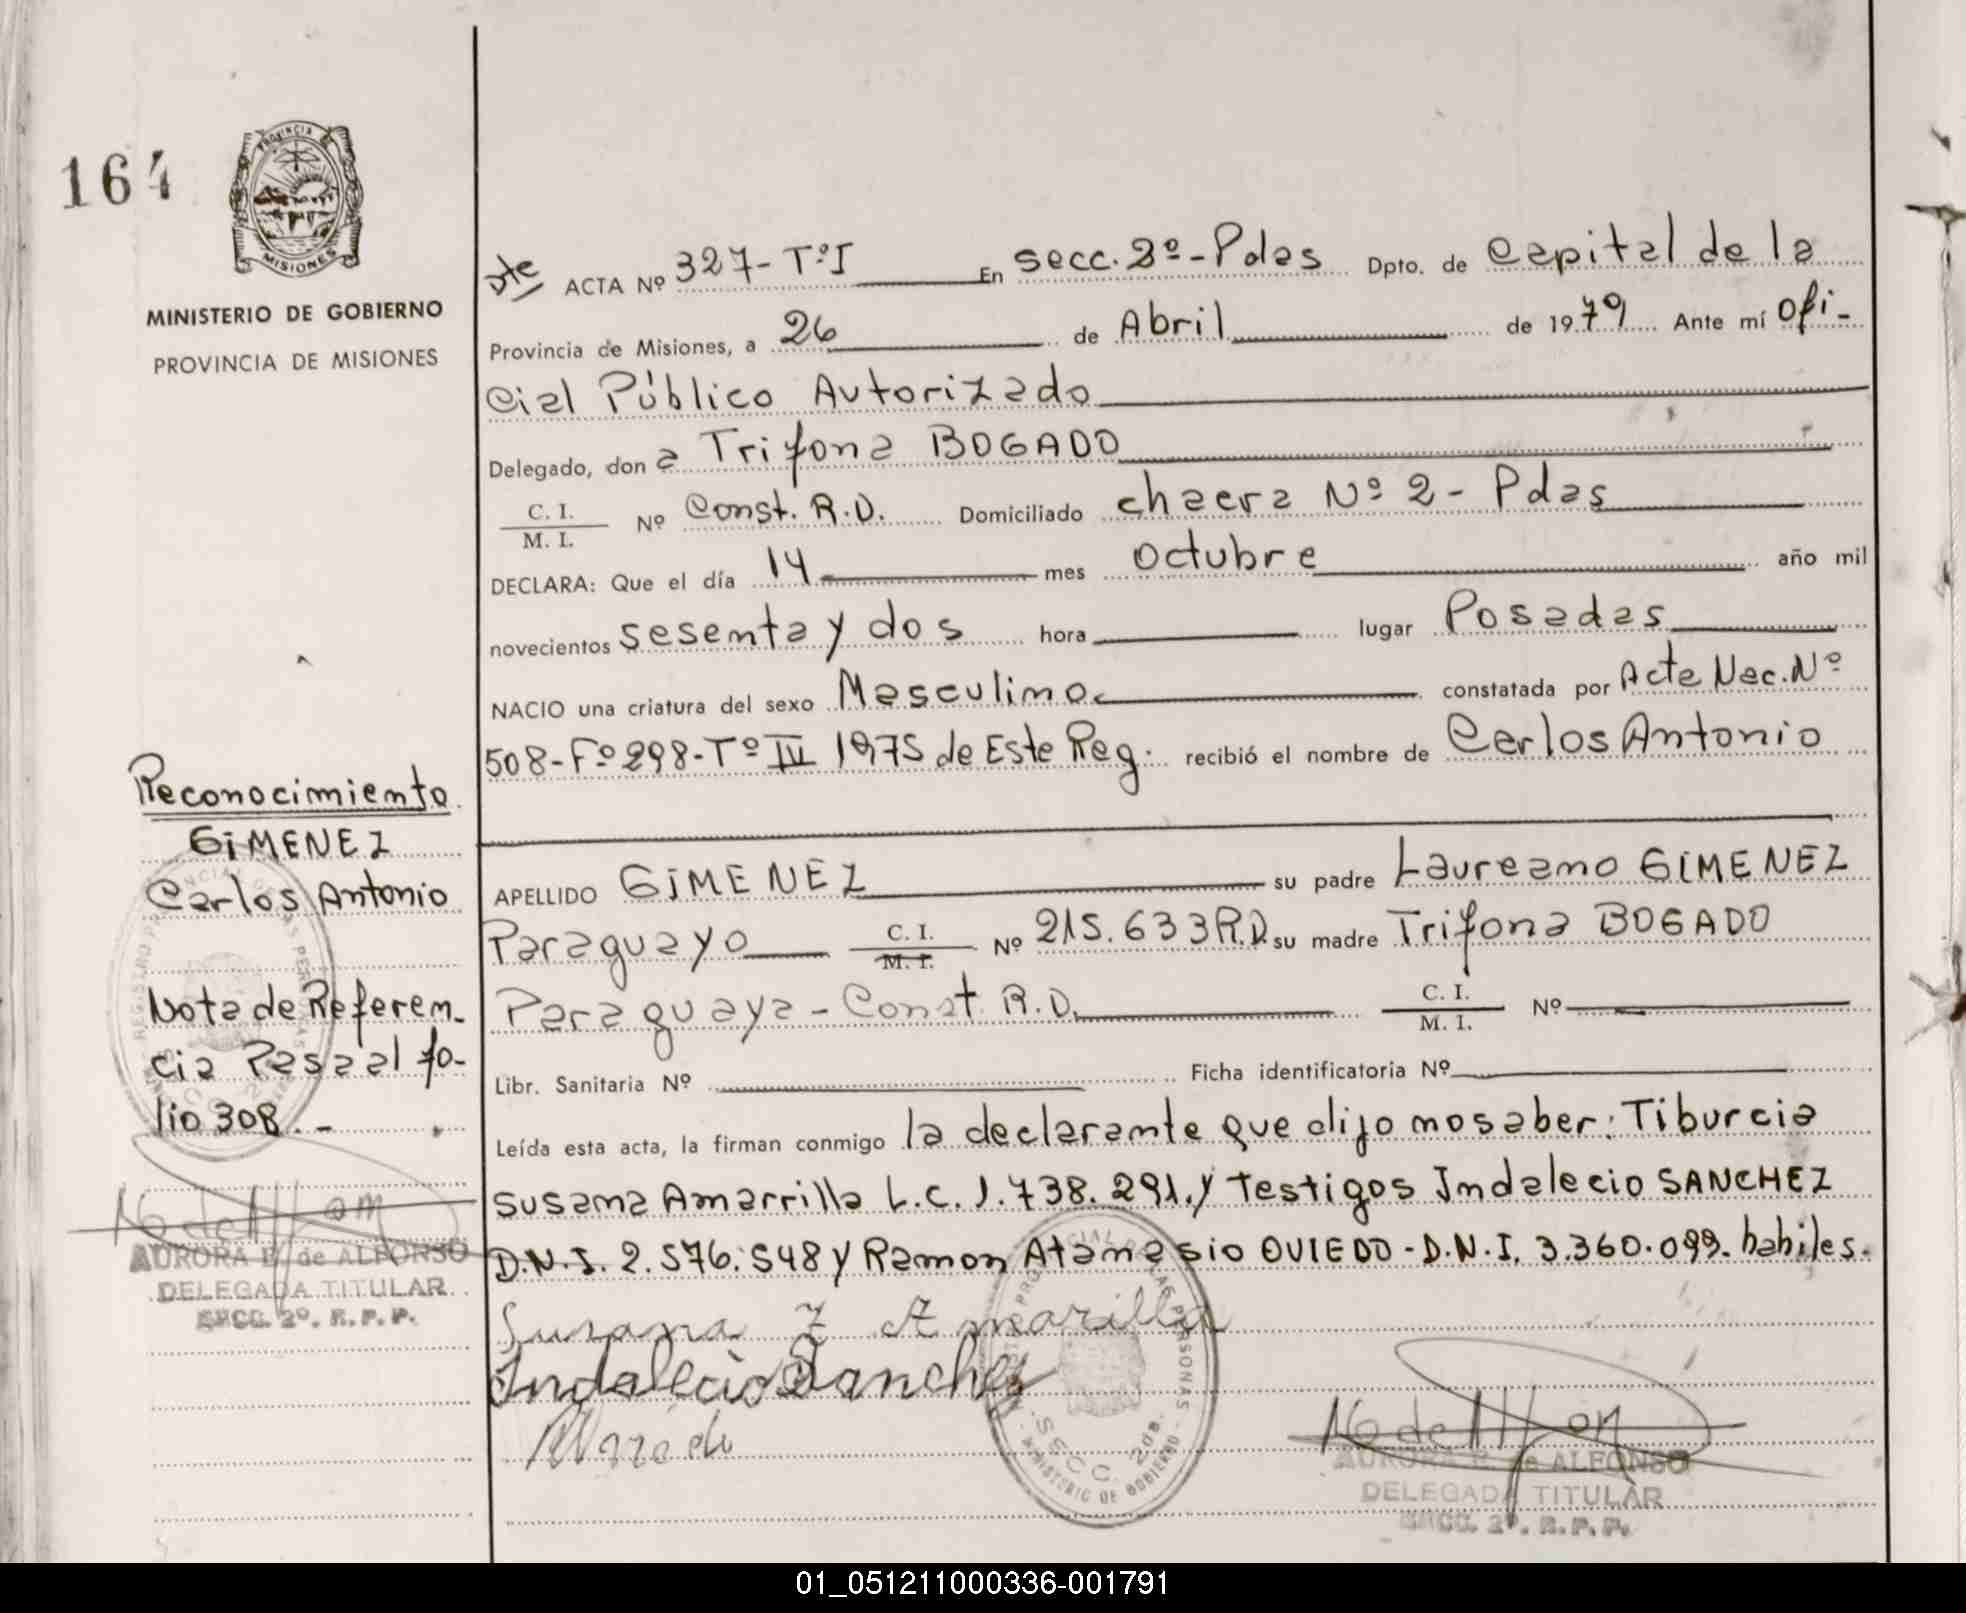 164
PROVINCIA
MISIONES
MINISTERIO DE GOBIERNO
PROVINCIA DE MISIONES
Dte ACTA Nº 327-TºI En Secc. 2º-Pdas Dpto. de Capital de la
Provincia de Misiones, a 26 de Abril de 1979 Ante mí Ofi-
cial Público Autorizado
Delegado, don a Trifona BOGADO
C. I.
M. I. Nº Const. R.D. Domiciliado chacra Nº 2 - Pdas
DECLARA: Que el día 14 mes octubre año mil
novecientos sesenta y dos hora lugar Posadas
NACIO una criatura del sexo Masculino constatada por Acta Nac. Nº
508-Fº298-Tº IV 1975 de Este Reg. recibió el nombre de Carlos Antonio
APELLIDO GIMENEZ su padre Laureano GIMENEZ
Paraguayo C. I. M. I. Nº 215.633 R.D. su madre Trifona BOGADO
Paraguaya - Const. R.D. C. I. M. I. Nº
Libr. Sanitaria Nº Ficha identificatoria Nº
Leída esta acta, la firman conmigo la declarante que dijo no saber: Tiburcia
Susana Amarrilla L.C. 1.738.291. y testigos Indalecio SANCHEZ
D.N.I. 2.576.548 y Ramon Atanasio OVIEDO - D.N.I. 3.360.099. habiles.
Susana T Amarilla
Indalecio Sanchez
AURORA B. de ALFONSO
DELEGADA TITULAR
SECC. 2º. R.P.P.
Reconocimiento
GIMENEZ
Carlos Antonio
Nota de Referen-
cia Pasa al fo-
lio 308.-
AURORA B. de ALFONSO
DELEGADA TITULAR
SECC. 2º. R.P.P.
01_051211000336-001791